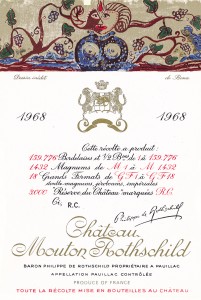 Dessin inédit de Bona
1968 1968
Cette récolte a produit :
159.776 Bordelaises et 1/2 Bses de 1 à 159.776
1432 Magnums de M 1 à M 1432
18 Grands Formats de G F 1 à G F 18
double-magnums, jeroboams, impériales
2000 "Réserve du Château" marquées R.C.
Ce R.C.
Philippe de Rothschild
Château
Mouton Rothschild
BARON PHILIPPE DE ROTHSCHILD PROPRIÉTAIRE A PAUILLAC
APPELLATION PAUILLAC CONTRÔLÉE
PRODUCE OF FRANCE
TOUTE LA RÉCOLTE MISE EN BOUTEILLES AU CHÂTEAU